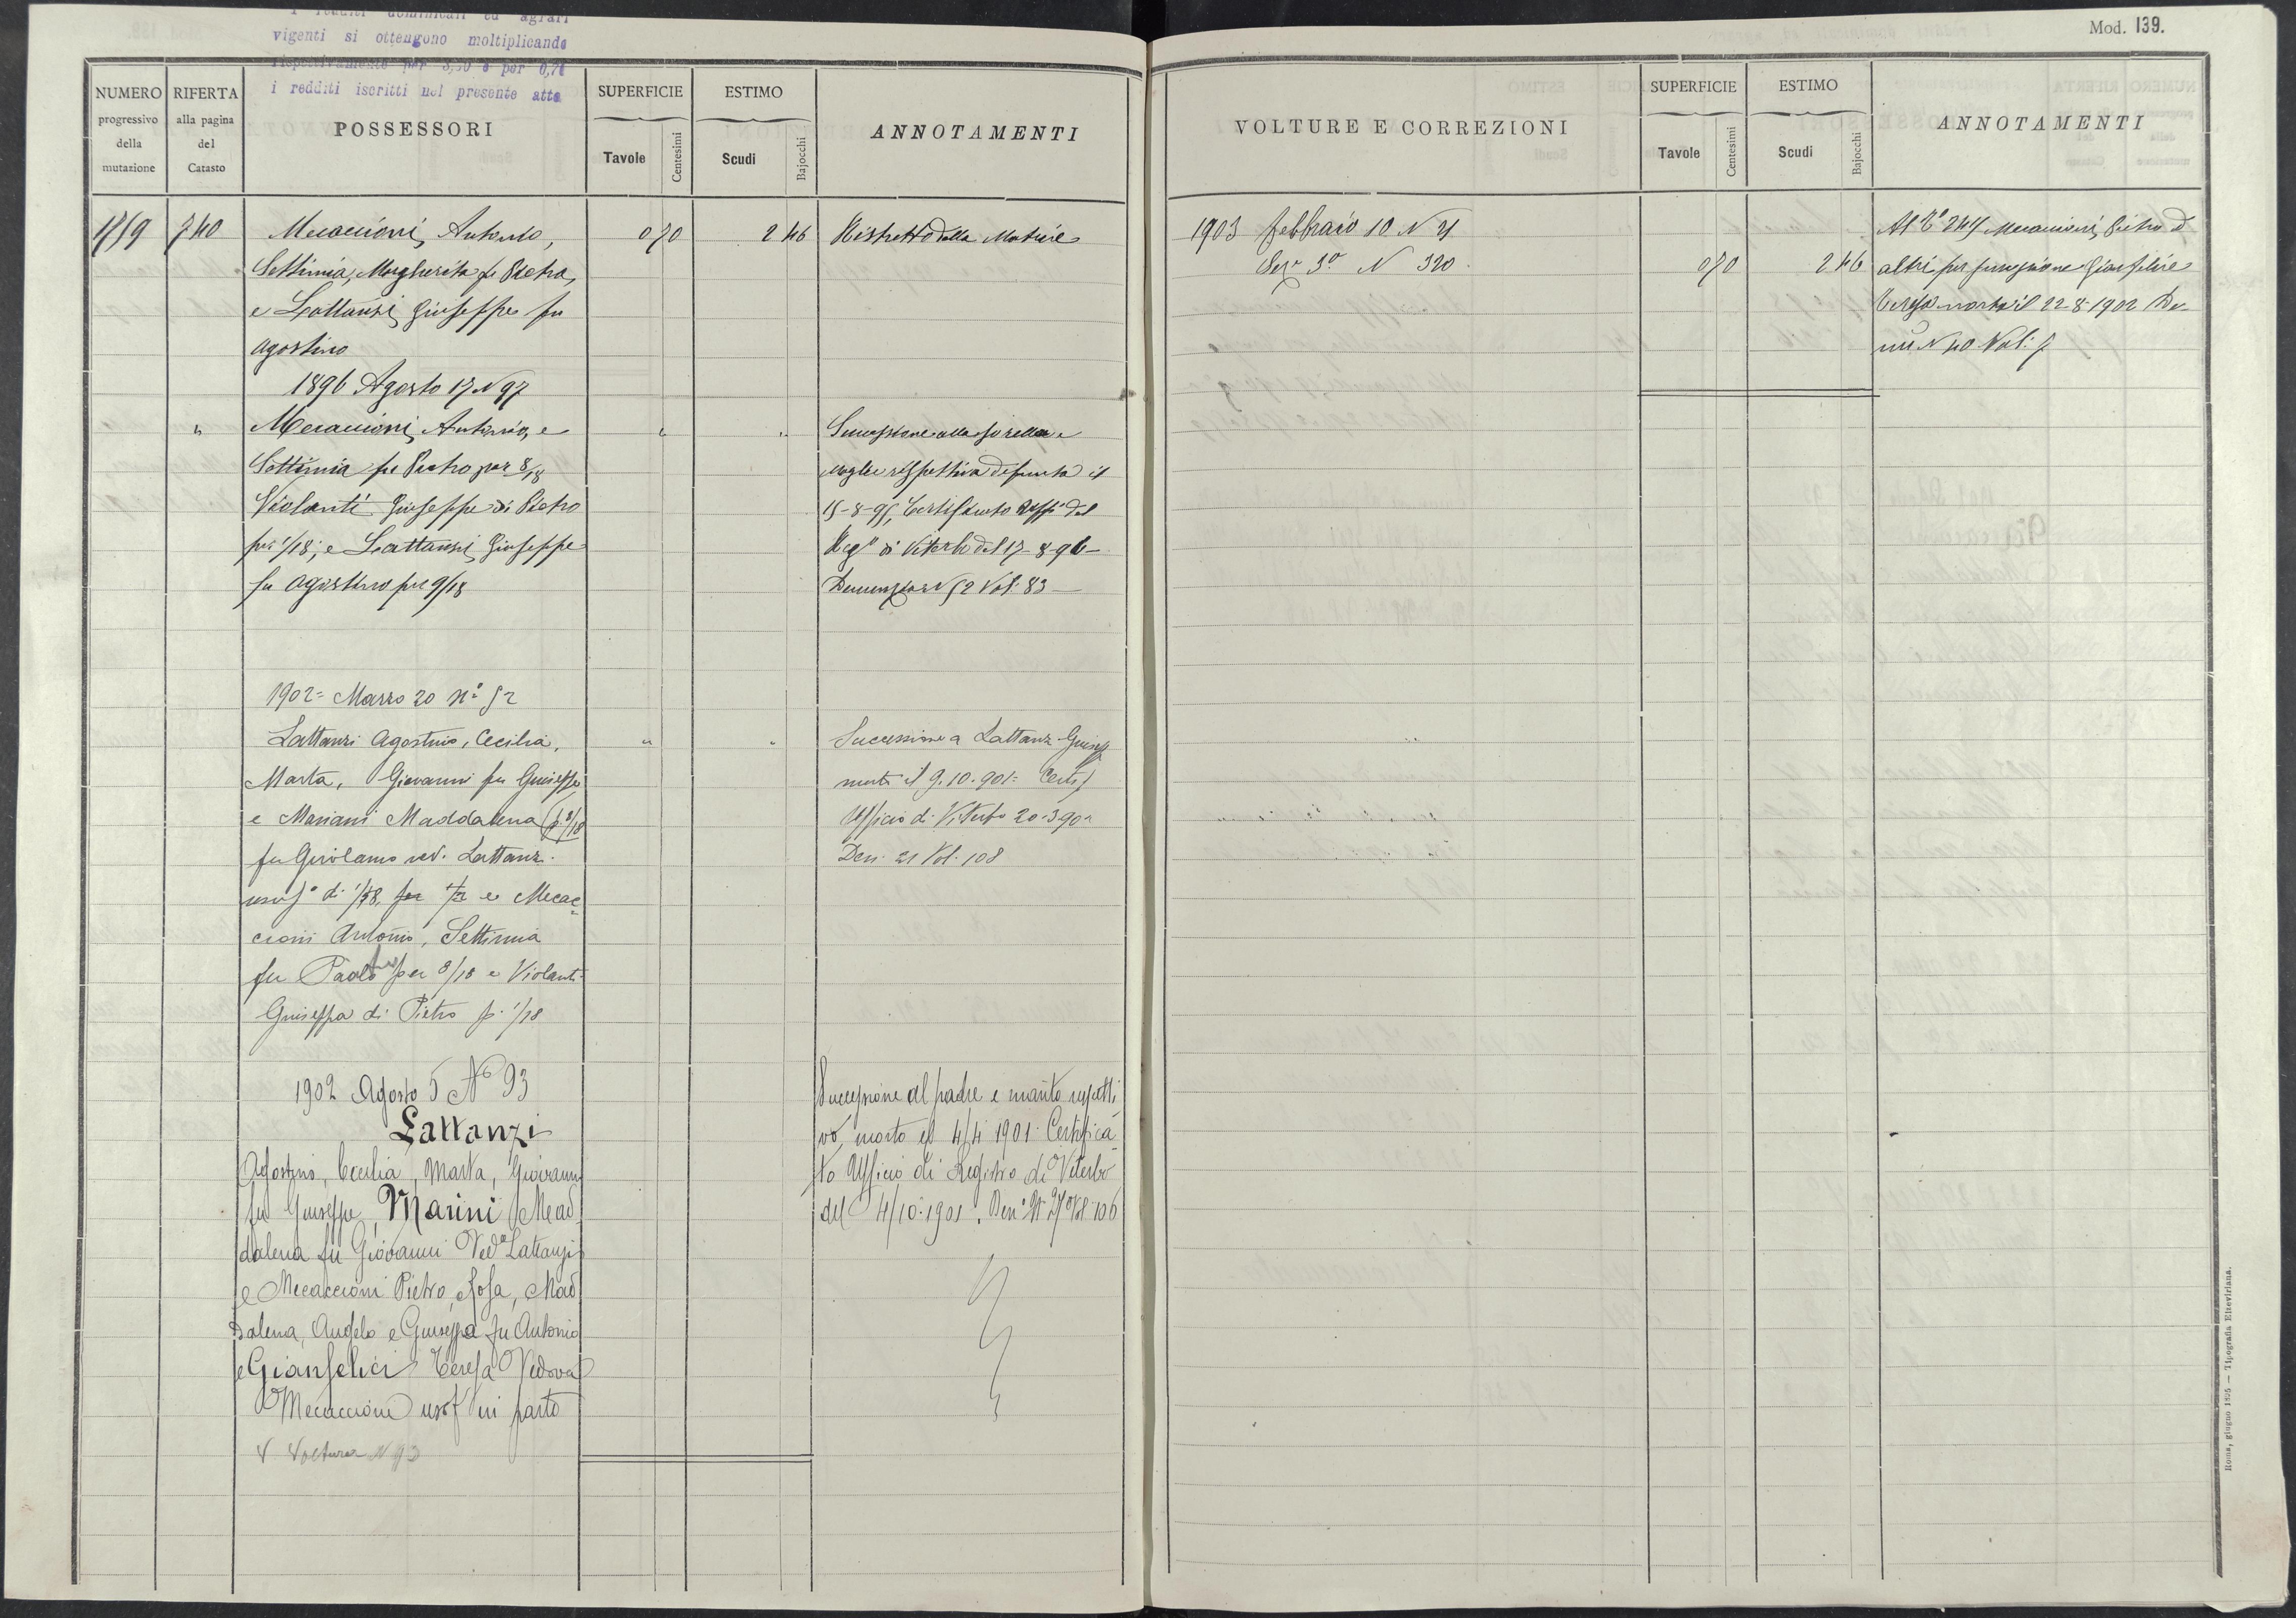 I redditi dominicali ed agrari
vigenti si ottengono moltiplicando
rispettivamente per 3,50 e per 0,70
i redditi iscritti nel presente atto
Mod. 139.
NUMERO
progressivo
della
mutazione
RIFERTA
alla pagina
del
Catasto
POSSESSORI
SUPERFICIE
Tavole
Centesimi
ESTIMO
Scudi
Bajocchi
ANNOTAMENTI
VOLTURE E CORREZIONI
SUPERFICIE
Tavole
Centesimi
ESTIMO
Scudi
Bajocchi
ANNOTAMENTI
1759 740 Mecaccioni Antonio, 0 70 2 46 Ristretto della Matrice
Settimia, Margherita fu Pietro,
e Lattanzi Giuseppe fu
Agostino
1896 Agosto 17 N 97
" Mecaccioni Antonio, e " " Successione alla sorella e
Settimia fu Pietro per 8/18 moglie rispettiva defunta il
Violanti Giuseppe di Pietro 15-8-95, Certificato Uff° del
per 1/18; e Lattanzi Giuseppe Reg° di Viterbo del 17-8-96-
fu Agostino per 9/18 Denunzia N 52 Vol: 83
1902= Marzo 20 N° 52
Lattanzi Agostino, Cecilia, " " Successione a Lattanzi Giusep
Marta, Giovanni fu Giuseppe morto il 9.10.901=
e Mariani Maddalena p. 9/18 Ufficio di Viterbo
fu Girolamo ved. Lattanzi Den. 21 Vol. 108
usuf° di 1/18, per 1/2 e Mecac=
cioni Antonio, Settimia
fu Paolo per 8/18 e Violanti
Giuseppa di Pietro p. 1/18
1902 Agosto 5 N° 93 Successione al padre e marito rispetti
Lattanzi vo, morto il 4/4 1901. Certifica
Agostino, Cecilia, Marta, Giovanni to Ufficio di Registro di Viterbo
fu Giuseppe, Marini Mad del 4/10.1901. Den° N. 27 Vol 106
dalena fu Giovanni Ved° Lattanzi
e Mecaccioni Pietro, Rosa, Mad
dalena, Angelo e Giuseppa fu Antonio
e Gianfelici Teresa Vedova
Mecaccioni usuf in parte
V. Voltura N 93
1903 febbraio 10 N 21
Sez° 3° N 320. 0 70 2 46
Al T° 2475 Mecaccioni Pietro ed
altri per Gianfelice
Teresa morta il 22-8-1902 De
nu N 40 Vol: 7
Roma, giugno 1895 — Tipografia Elzeviriana.